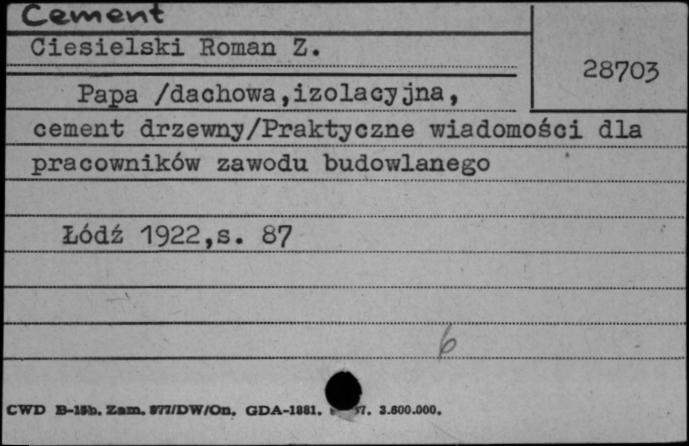 Cement
Ciesielski Roman Z.
28703
Papa /dachowa,izolacyjna,
cement drzewny/Praktyczne wiadomości dla
pracowników zawodu budowlanego
Łódź 1922,s. 87
6
CWD B-15b. Zam. 877/DW/On. GDA-1881. 57. 3.600.000.